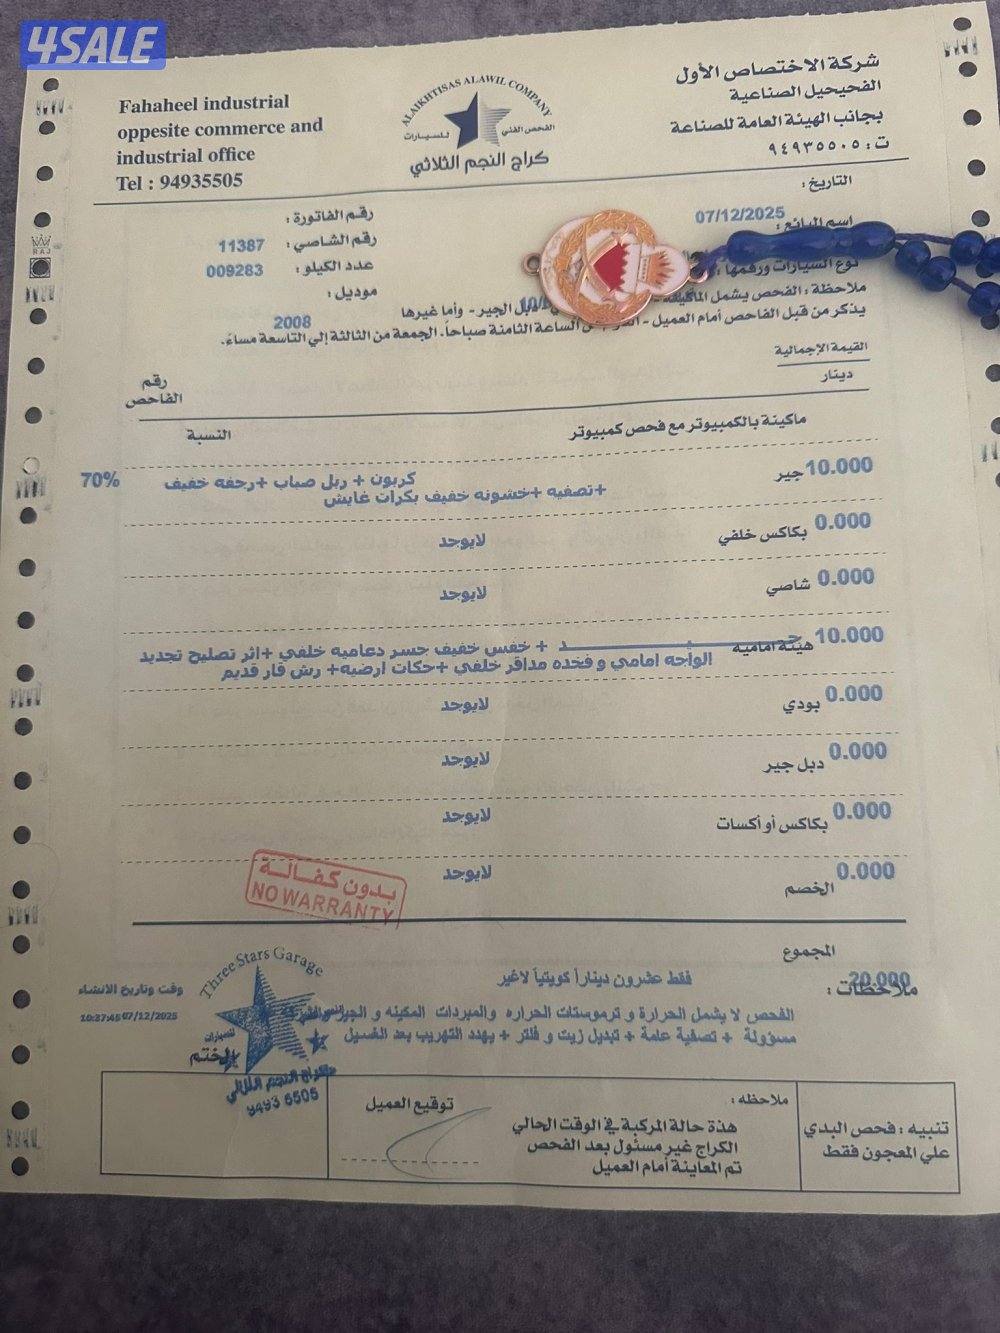 4SALE
Fahaheel industrial
oppesite commerce and
industrial office
Tel : 94935505
ALAIKHTISAS ALAWIL COMPANY
الفحص الفني للسيارات
كراج النجم الثلاثي
شركة الاختصاص الأول
الفحيحيل الصناعية
بجانب الهيئة العامة للصناعة
ت : ٩٤٩٣٥٥٠٥
التاريخ :
07/12/2025
اسم البائع :
نوع السيارات ورقمها :
رقم الفاتورة :
رقم الشاصي : 11387
عدد الكيلو : 009283
موديل :
2008
ملاحظة : الفحص يشمل الماكينة - دبل الجير - وأما غيرها
يذكر من قبل الفاحص أمام العميل - الساعة الثامنة صباحاً. الجمعة من الثالثة إلي التاسعة مساءً.
القيمة الإجمالية
دينار
رقم
الفاحص
ماكينة بالكمبيوتر مع فحص كمبيوتر
النسبة
10.000 جير
كربون + ربل صباب +رجفه خفيف 70%
+تصفيه +خشونه خفيف بكرات غايش
0.000 بكاكس خلفي لايوجد
0.000 شاصي لايوجد
10.000 هيئة أمامية
+ خفس خفيف جسر دعاميه خلفي +اثر تصليح تجديد
الواجه امامي و فخذه مدافر خلفي +حكات ارضيه+ رش قار قديم
0.000 بودي لايوجد
0.000 دبل جير لايوجد
0.000 بكاكس أو أكسات لايوجد
0.000 الخصم لايوجد
بدون كفالة
NO WARRANTY
المجموع
20.000
فقط عشرون ديناراً كويتياً لاغير
ملاحظات :
وقت وتاريخ الانشاء
10:37:45 07/12/2025
الفحص لا يشمل الحرارة و ثرموستات الحراره والمبردات المكينه و الجير
مسؤولة + تصفية عامة + تبديل زيت و فلتر + يهدد التهريب بعد الغسيل
Three Stars Garage
للسيارات
الختم
كراج النجم الثلاثي
9493 5505
تنبيه : فحص البدي
علي المعجون فقط
ملاحظه :
هذة حالة المركبة في الوقت الحالي
الكراج غير مسئول بعد الفحص
تم المعاينة أمام العميل
توقيع العميل